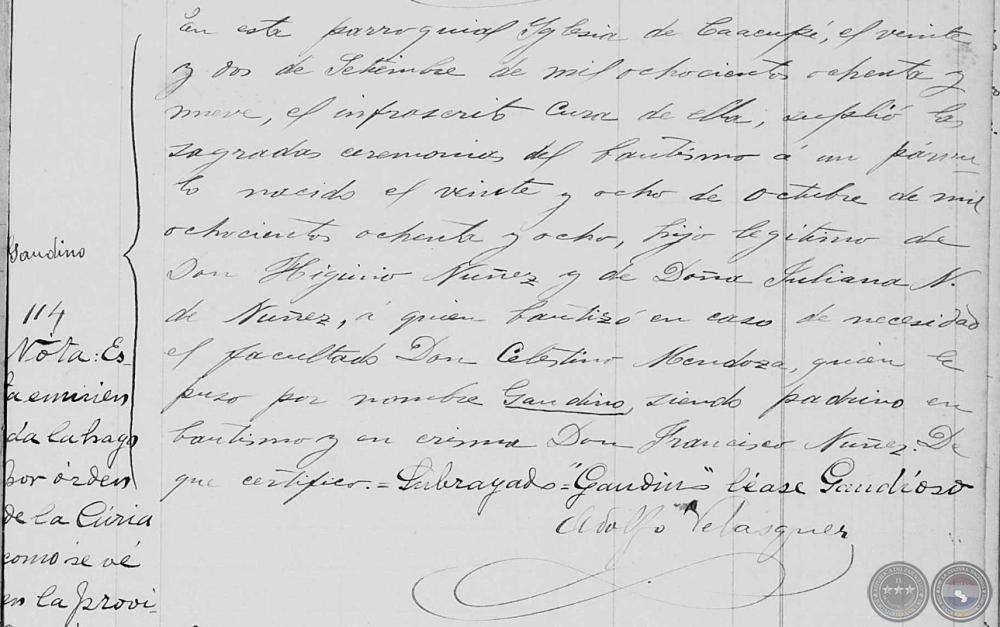 En esta parroquial Yglesia de Caacupé, el veinte
y dos de Setiembre de mil ochocientos ochenta y
nueve, el infrascrito Cura de ella, suplió las
sagradas ceremonias del bautismo á un párvu
lo nacido el veinte y ocho de octubre de mil
ochocientos ochenta y ocho, hijo legitimo de
Don Higinio Nuñez y de Doña Juliana N.
de Nuñez, á quien bautizó en caso de necesidad
el facultado Don Celestino Mendoza, quien le
puso por nombre Gaudino, siendo padrino en
bautismo y en crisma Don Francisco Nuñez. De
que certifico.= Subrayado="Gaudino" léase Gaudioso
Adolfo Velasquez
Gaudino
114
Nota: Es-
ta enmien
da la hago
por órden
de la Cúria
como se vé
en la provi-